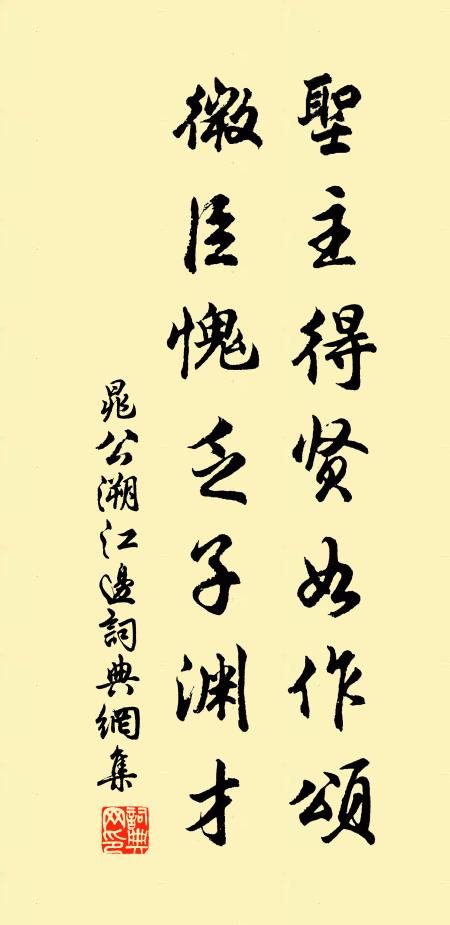 聖主得贤如作頌
微臣愧乏子渊才
晁公溯江邊詞典網集
詞典网印